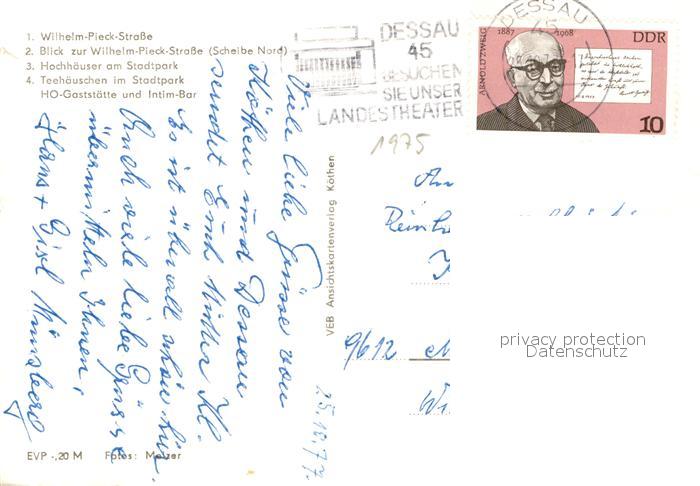 1. Wilhelm-Pieck-Straße
2. Blick zur Wilhelm-Pieck-Straße (Scheibe Nord)
3. Hochhäuser am Stadtpark
4. Teehäuschen im Stadtpark
HO-Gaststätte und Intim-Bar
DESSAU
45
BESUCHEN
SIE UNSER
LANDESTHEATER
DESSAU
45
1887 1968
DDR
ARNOLD ZWEIG
10
1975
Viele liebe Grüsse von
Köthen und Dessau
sendet Euch Mutter Kl.
Es ist überall schön hier.
Auch viele liebe Grüsse
übermitteln Ihnen,
Hans + Gisl
VEB Ansichtskartenverlag Köthen
25.10.77
An
9612
privacy protection
Datenschutz
EVP -,20 M Fotos: Melzer